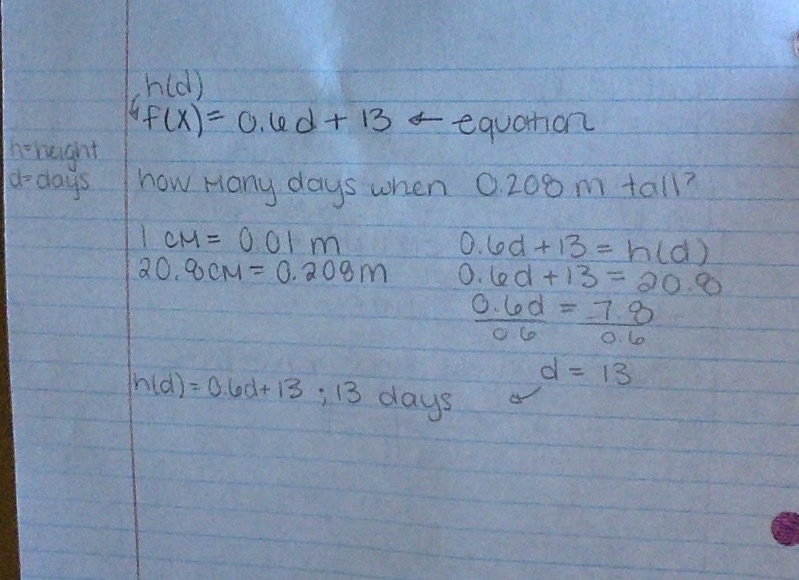 h(d)
f(x) = 0.6d + 13 ← equation
h=height
d=days
how many days when 0.208 m tall?
1 cm = 0.01 m
20.8cm = 0.208m
0.6d + 13 = h(d)
0.6d + 13 = 20.8
0.6d = 7.8
0.6 0.6
d = 13
h(d) = 0.6d + 13 ; 13 days